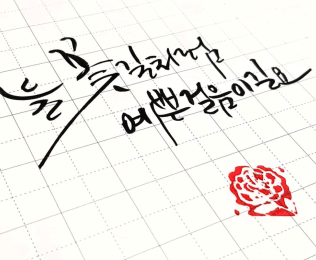 꽃길처럼
예쁜 걸음이길요